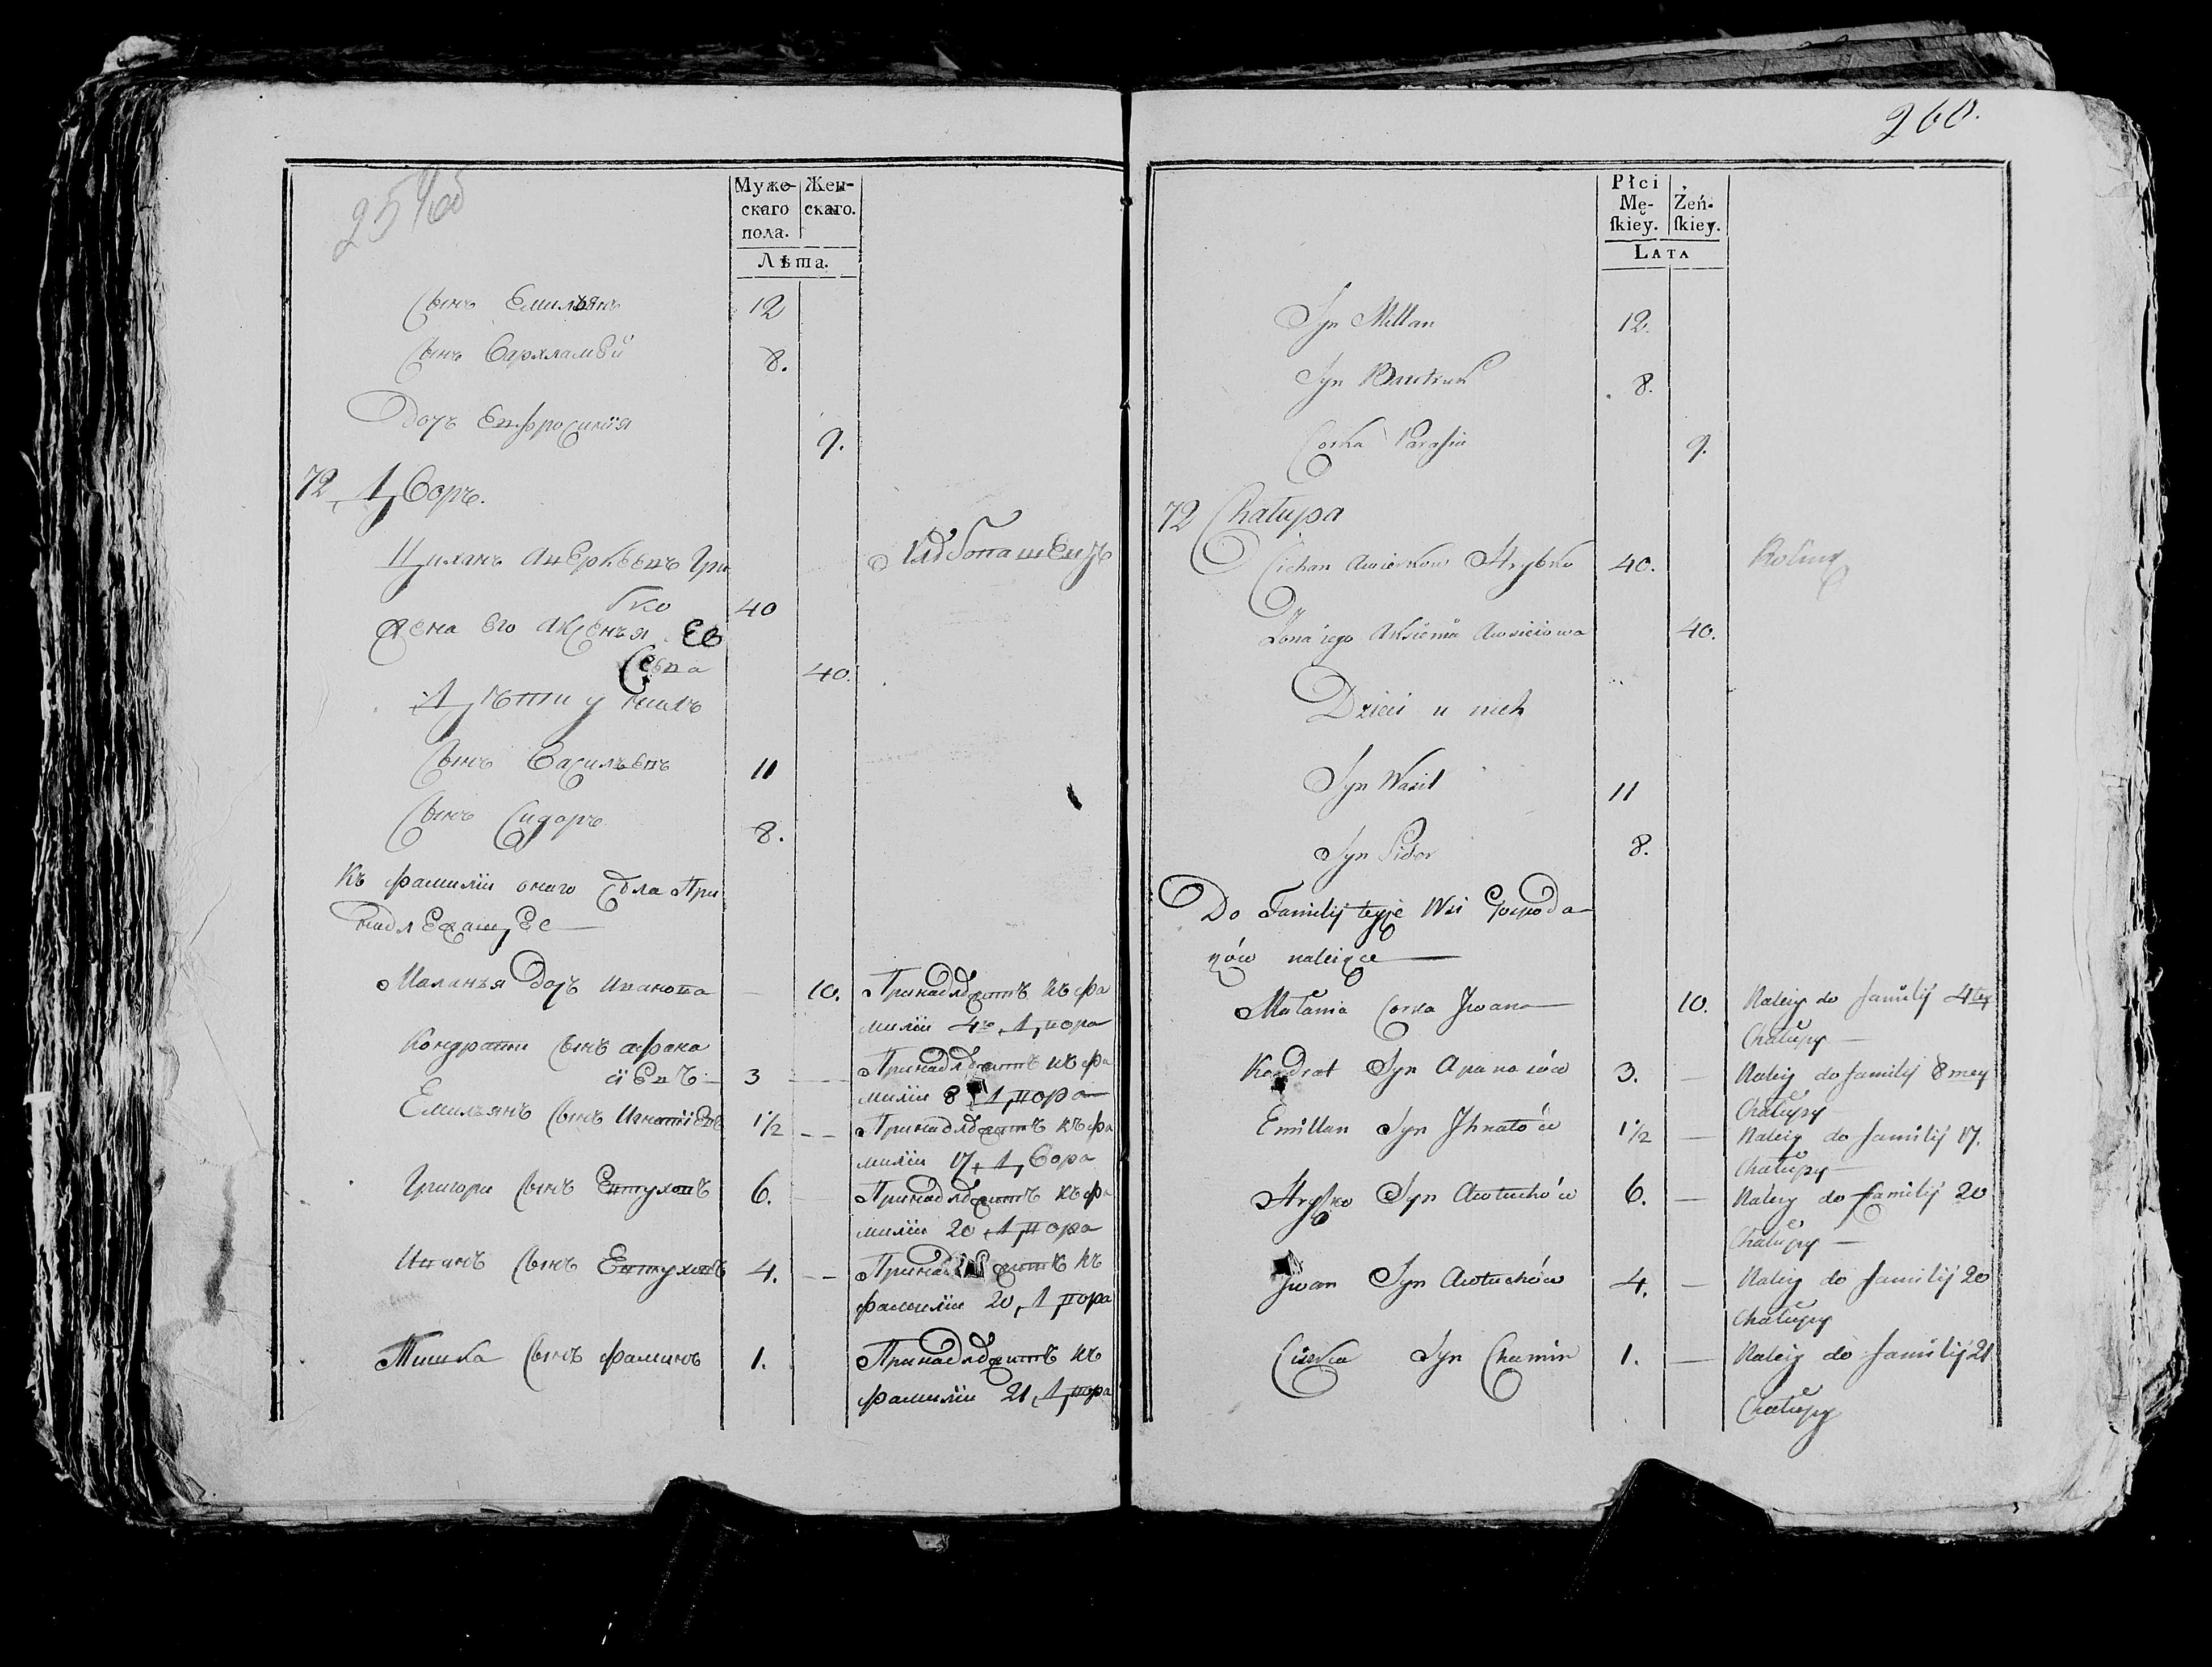 Муже-
скаго
пола.
Жен-
скаго.
Лѣта.
Сынъ Емильянъ 12
Сынъ Вархламѣй 8.
Дочь Евфросинія 9.
72 Дворъ.
Цихань Авѣрквевъ Гри
бко 40
Хлѣбопашецъ
Жена Его Аксенья Ев
сѣева 40.
Дѣти у нихъ
Сынъ Васильевъ 11
Сынъ Сидоръ 8.
Къ фамиліи онаго Села При
надлежащее
Маланья Дочь Иванова — 10. Принадлежитъ къ фа
миліи 4го Двора
Кондрати Сынъ Афана
сіевъ 3 Принадлежитъ къ фа
миліи 8 Двора
Емильянъ Сынъ Игнатіевъ 1½ Принадлежитъ къ фа
миліи 17 Двора
Григори Сынъ Евтуховъ 6. Принадлежитъ къ фа
миліи 20 Двора
Иванъ Сынъ Евтуховъ 4. Принадлежитъ къ
фамиліи 20 Двора
Тишка Сынъ Фаминъ 1. Принадлежитъ къ
фамиліи 21 Двора
260.
Płci
Mę-
ſkiey.
Żeń-
ſkiey.
LATA
Syn Millan 12.
Syn 8.
Corka Parasia 9.
72 Chałupa
Cichan Awierkow Hrybko 40. Rolnik
Żona iego Aksienia Awsieiowa 40.
Dzieci u nich
Syn Wasil 11
Syn Sidor 8.
Do Familij teyże Wsi Gospoda
rzów należące
Małania Corka Jwana 10. Należy do familij 4tey
Chałupy
Kondrat Syn Apanasów 3. Należy do familij 8mey
Chałupy
Emillan Syn Jhnatów 1½ Należy do familij 17.
Chałupy
Hryszko Syn Awtuchów 6. Należy do familij 20
Chałupy
Jwan Syn Awtuchów 4. Należy do familij 20
Chałupy
Ciszka Syn Chamin 1. Należy do familij 21
Chałupy